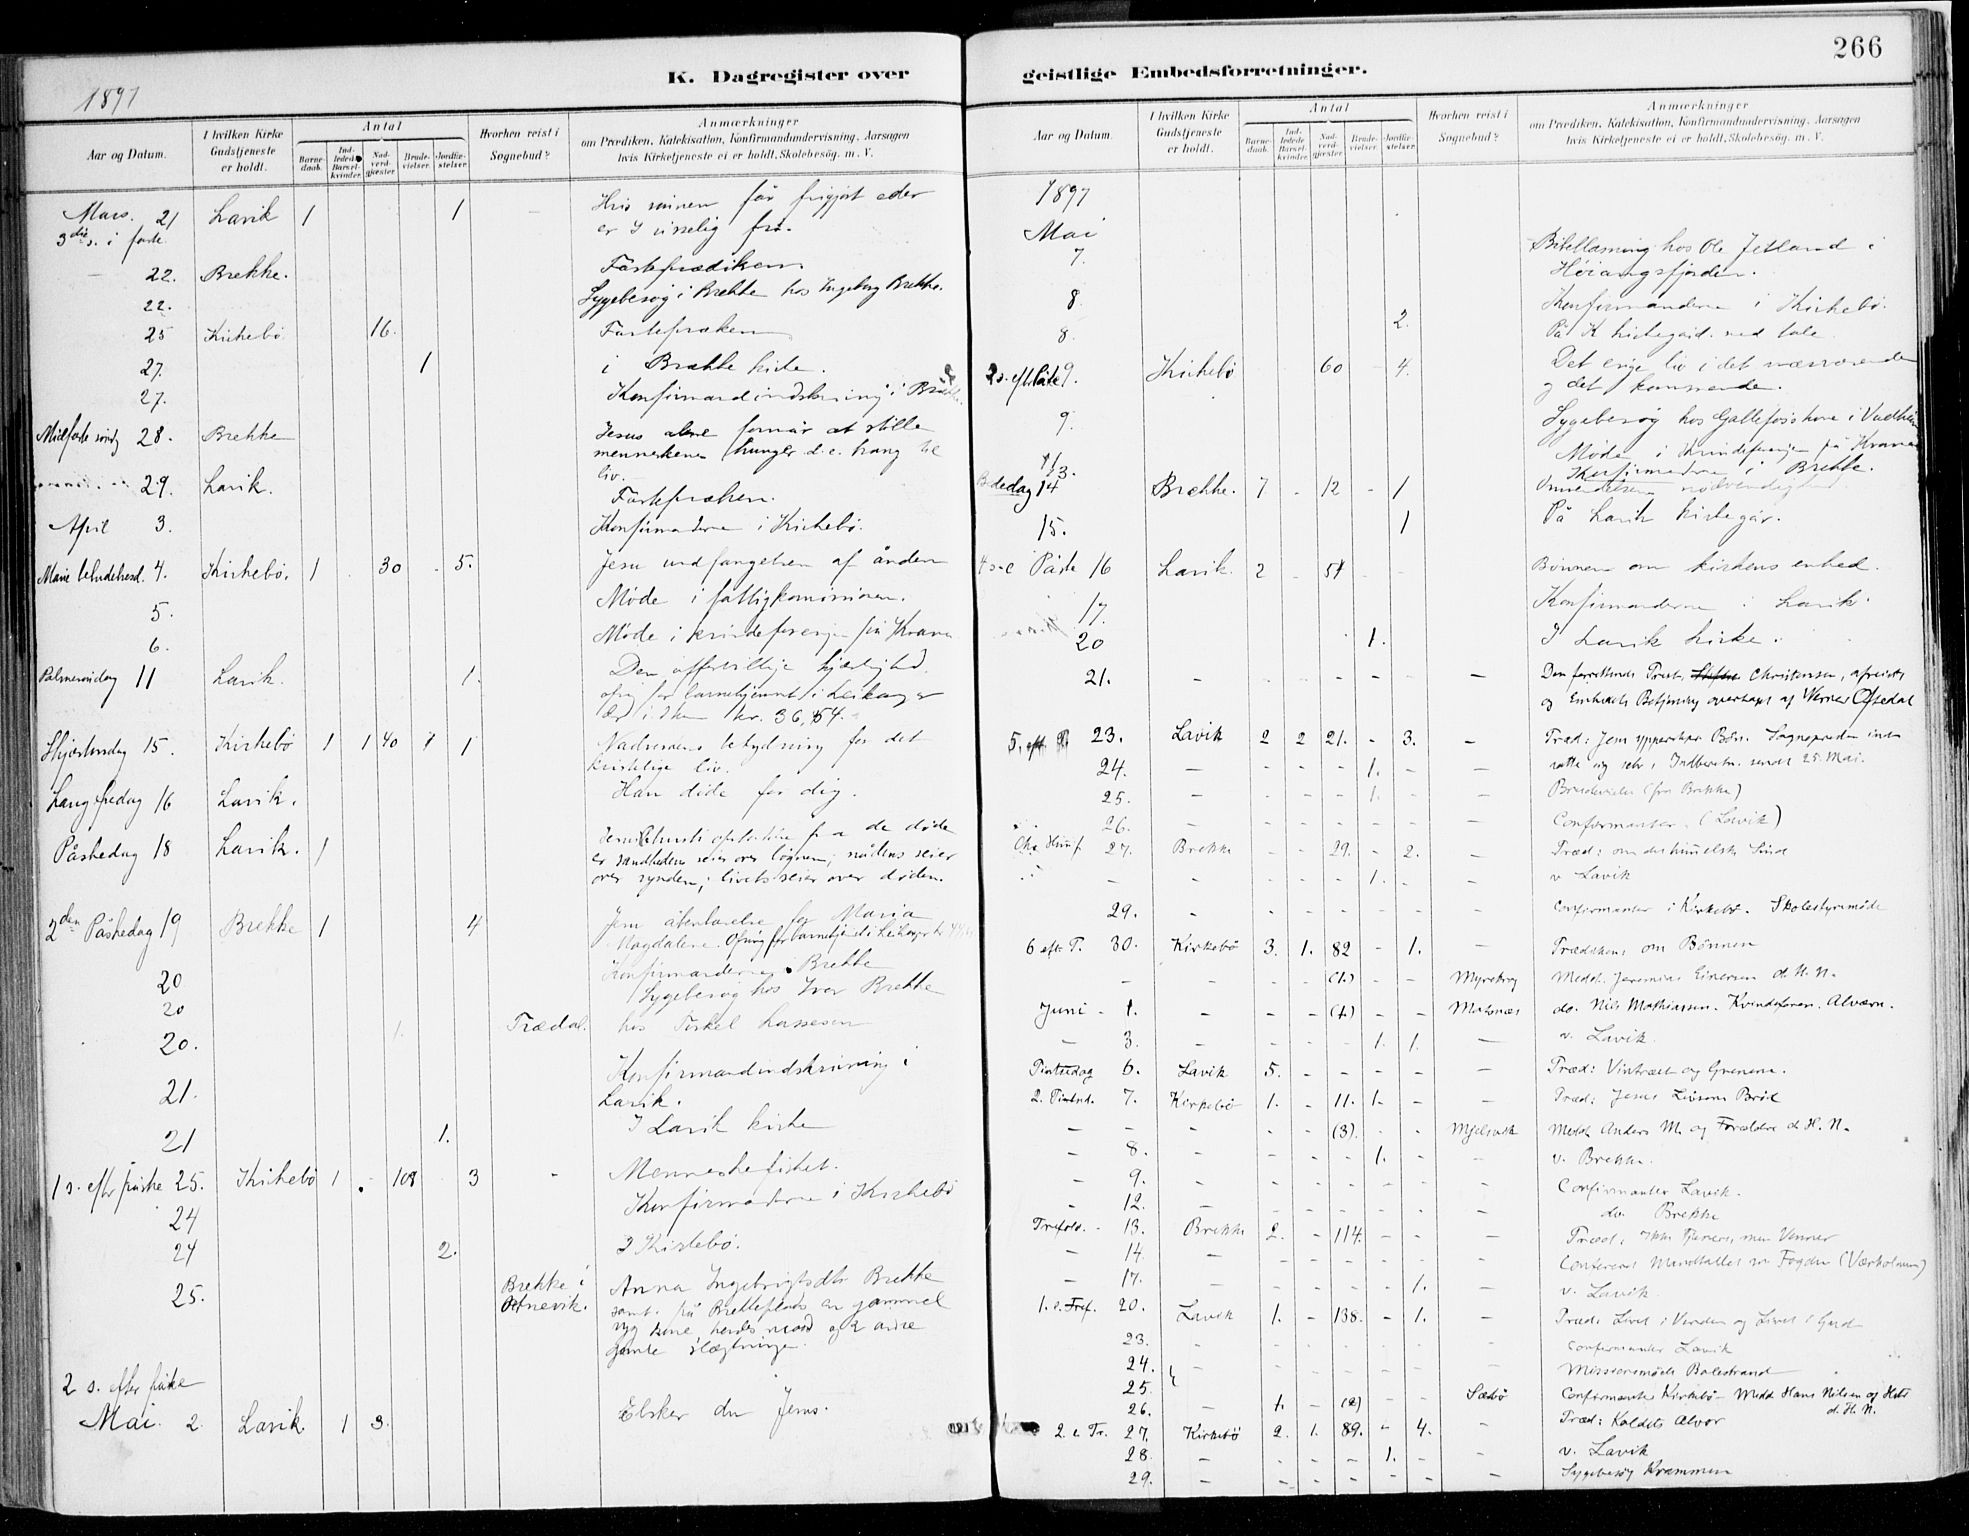 266
K. Dagregister over
geistlige Embedsforretninger.
1897
Aar og Datum.
I hvilken Kirke Gudstjeneste er holdt.
Antal
Barnedaab.
Indledede Barselkvinder.
Nadverdgjæster.
Brudevielser.
Jordfæstelser.
Hvorhen reist i Sognebud?
Anmærkninger
om Prædiken, Katekisation, Konfirmandundervisning, Aarsagen hvis Kirketjeneste ei er holdt, Skolebesøg. m. V.
Mars. 21 Lavik 1 1 Hvis sønnen får frigjort eder
3die s. i faste er I virkelig fri.
22. Brekke. Fasteprædiken.
22. Sygebesøg i Brekke hos Ingeborg Brekke.
25 Kirkebö 16.
27. 1 i Brekke kirke.
27. Konfirmandindskrivning i Brekke.
Midfaste sönd. 28. Brekke Jesus alene formår at stille
menneskenes hunger d.e. trang til
liv.
29. Lavik.
April 3. Konfirmanderne i Kirkebö.
Marie bebudelsesd. 4. Kirkebö. 1 30 5. Jesu undfangelsen af ånden
5. Møde i fattigkommissionen.
6. Møde i kvindeforeningen på
Palmesöndag 11 Lavik. 1. Den offervillige kjærlighed.
kr. 36,54.
Skjærtorsdag 15. Kirkebö 1 1 40 1 1 Nadverdens betydning for det
kristelige liv.
Langfredag 16 Lavik. Han døde for dig.
Påskedag 18 Lavik. 1 Jesu Christi opstandelse fra de døde
er sandhedens seier over løgnen; nådens seier
over synden; livets seier over døden.
2den Påskedag 19 Brekke 1 4 Jesu åbenbarelse for Maria
Magdalene.
20 Konfirmanderne i Brekke
20 Sygebesøg hos Iver Brekke
20. 1. Trædal. hos Torkel Lassesen
21. Konfirmandindskrivning i
Lavik.
21 1. I Lavik kirke
1 s. efter påske 25. Kirkebö 1 108 3 Menneskefisket.
24 Konfirmanderne i Kirkebö
24 2. I Kirkebö.
25. Brekke i Anna Ingebrigtsdtr Brekke
samt på en gammel
syg kone, hendes mand og 2 andre
gamle slægtninge.
2 s. efter påske
Mai. 2. Lavik. 1 3. Elsker du Jesus.
Aar og Datum.
I hvilken Kirke Gudstjeneste er holdt.
Antal
Barnedaab.
Indledede Barselkvinder.
Nadverdgjæster.
Brudevielser.
Jordfæstelser.
Hvorhen reist i Sognebud?
Anmærkninger
om Prædiken, Katekisation, Konfirmandundervisning, Aarsagen hvis Kirketjeneste ei er holdt, Skolebesøg. m. V.
1897
Mai
7. Bibellæsning hos Ole Jetland i
Høiangsfjorden.
8. Konfirmanderne i Kirkebö.
8. 2. På K kirkegård. ved tale
9. Kirkebö 60 4. Det evige liv i det nærværende
og det kommende.
9. Sygebesøg hos
11 Møde i Kvindeforeningen på
13. Konfirmanderne i Brekke.
Bededag 14 Brekke. 7 - 12 - 1 Omvendelsens nødvendighed.
15. 1 På Lavik kirkegår.
4 s. e Påske 16 Lavik. 2 - 51 - - Bønnen om kirkens enhed.
17. Konfirmanderne i Lavik.
20 1. I Lavik kirke.
21. - - - - - - - Den forrettende Præst, Christensen, afreiste
og Embedets Betjening overtages af Werner Oftedal
5. eft. P. 23. Lavik 2 2 21. - 3. - Præd: Jesu ypperstepr. Bön.
Indberetn. sendt 25. Mai.
24. - - - - 1. - -
25. - - - - 1. - - Brudevielse (fra Brekke)
26. - - - - - - - Confirmanter. (Lavik)
27. Brekke - - 29. - 2. - Præd: om det himmelske Sind
- - - - - 1. - - v. Lavik
29. - - - - - - - Confirmanter i Kirkebö. Skolestyremöde
6 eft. P. 30. Kirkebö 3. 1. 82 - 1. - Prædikens om Bönnen
- - - - (1.) - - Medd. Jeremias Einersen d. H. N.
Juni - 1. - - - (1.) - - Matsnæs do. Nils Mathiassen. Kvindeforen. Alværn.
- 3. - - - - 1. 1. - v. Lavik
Pintsedag 6. Lavik 5. - - - - - Præd: Vintræet og Grenene.
2. Pintsed. 7. Kirkebö 1. - 11. 1. - - Præd: Jesus Livsens Bröd
- - - - (3). - - Medd. Anders M. og Forældre d. H. N.
- 8. - - - - 1. - - v. Brekke.
- 9. - - Confirmanter Lavik.
- 12. - - do Brekke
Trefold. - 13. Brekke 2. - 114. - - - Præd: Ikke Tjenere, men Venner
- 14. -
- 17. - - - - - 1. - v. Lavik
1. e. Tref. 20. Lavik 1. - 138. - 1. - Præd: Livet i Verden og Livet i Gud
23. - - - - - - - Confirmanter Lavik
24. Missionsmöde Balestrand
25.
26. - 1. - (2) - - Sæbö Confirmanter Kirkebö - Medd. Hans Nilsen og Hstr
d. H. N.
2. e Tr. 27. Kirkebö 2. 1. 89. - 4. - Præd: Kaldets Alvor
28. - - - - 1. - - v. Lavik
29. - - - - - - - Sygebesög